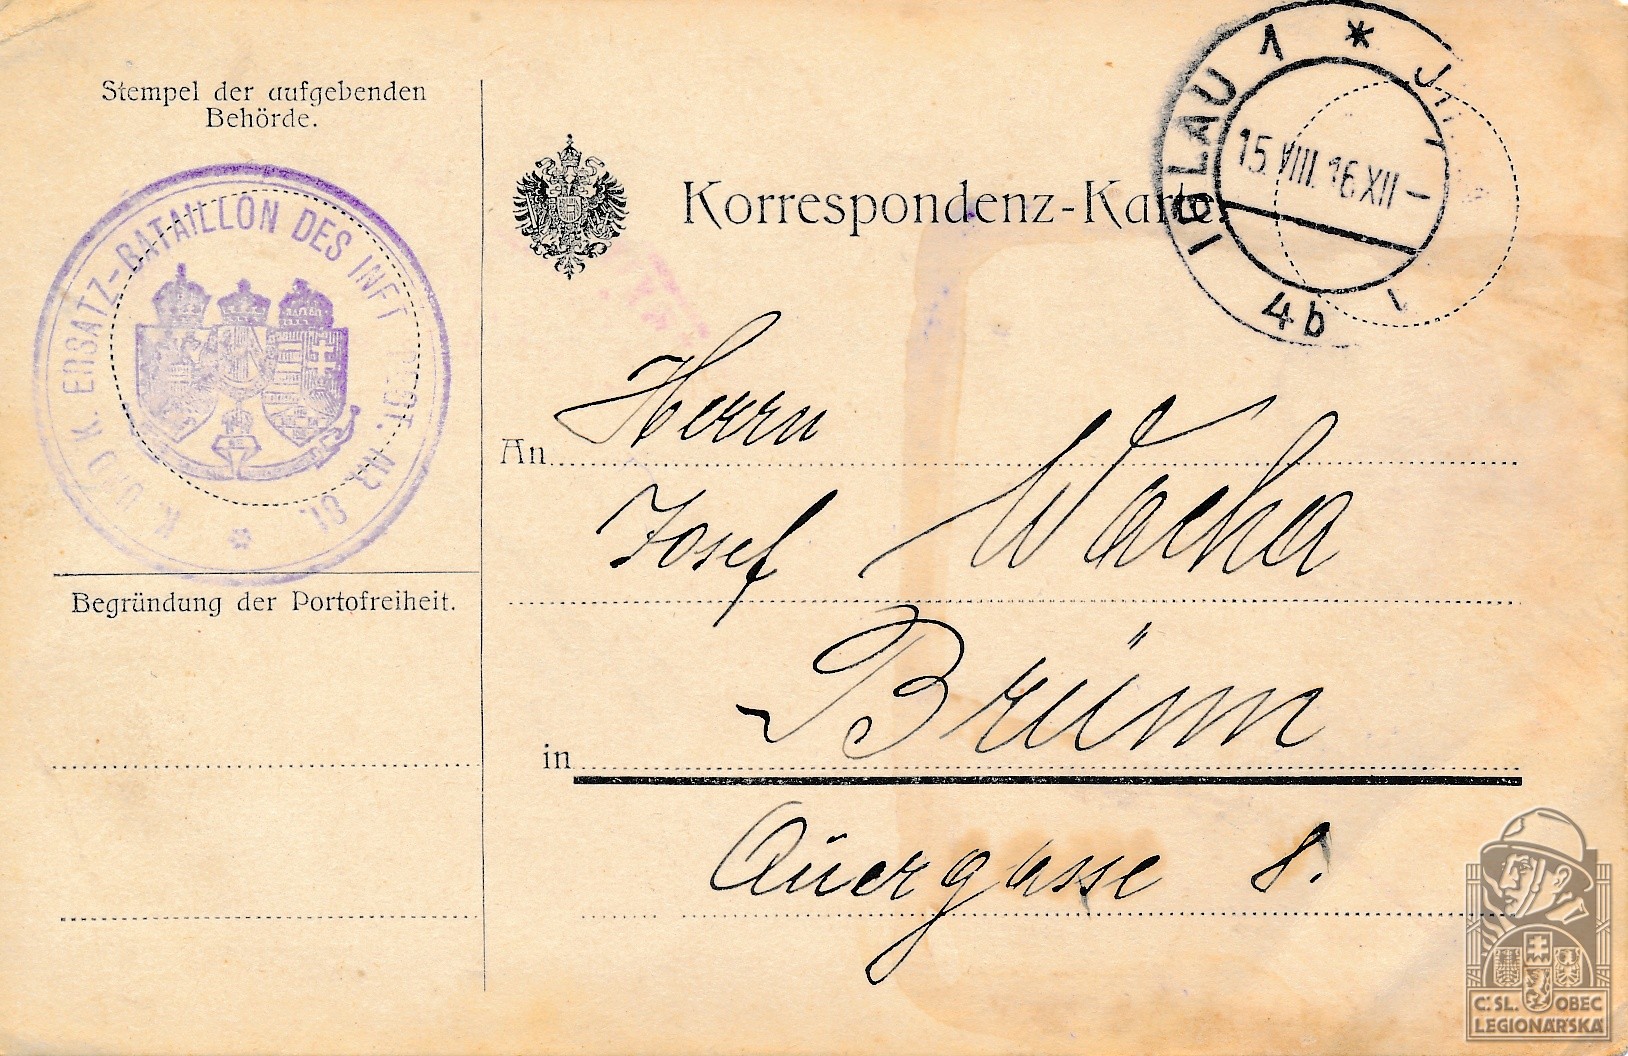 Stempel der aufgebenden
Behörde.
K. UND K. ERSATZ-BATAILLON DES INFT. REGT. NR. 81.
Begründung der Portofreiheit.
Korrespondenz-Karte.
IGLAU 1 *
15.VIII.16 XII-
4b
An Herrn
Josef Wacha
in Brünn
Auergasse 8.
Č.SL. OBEC
LEGIONÁŘSKÁ